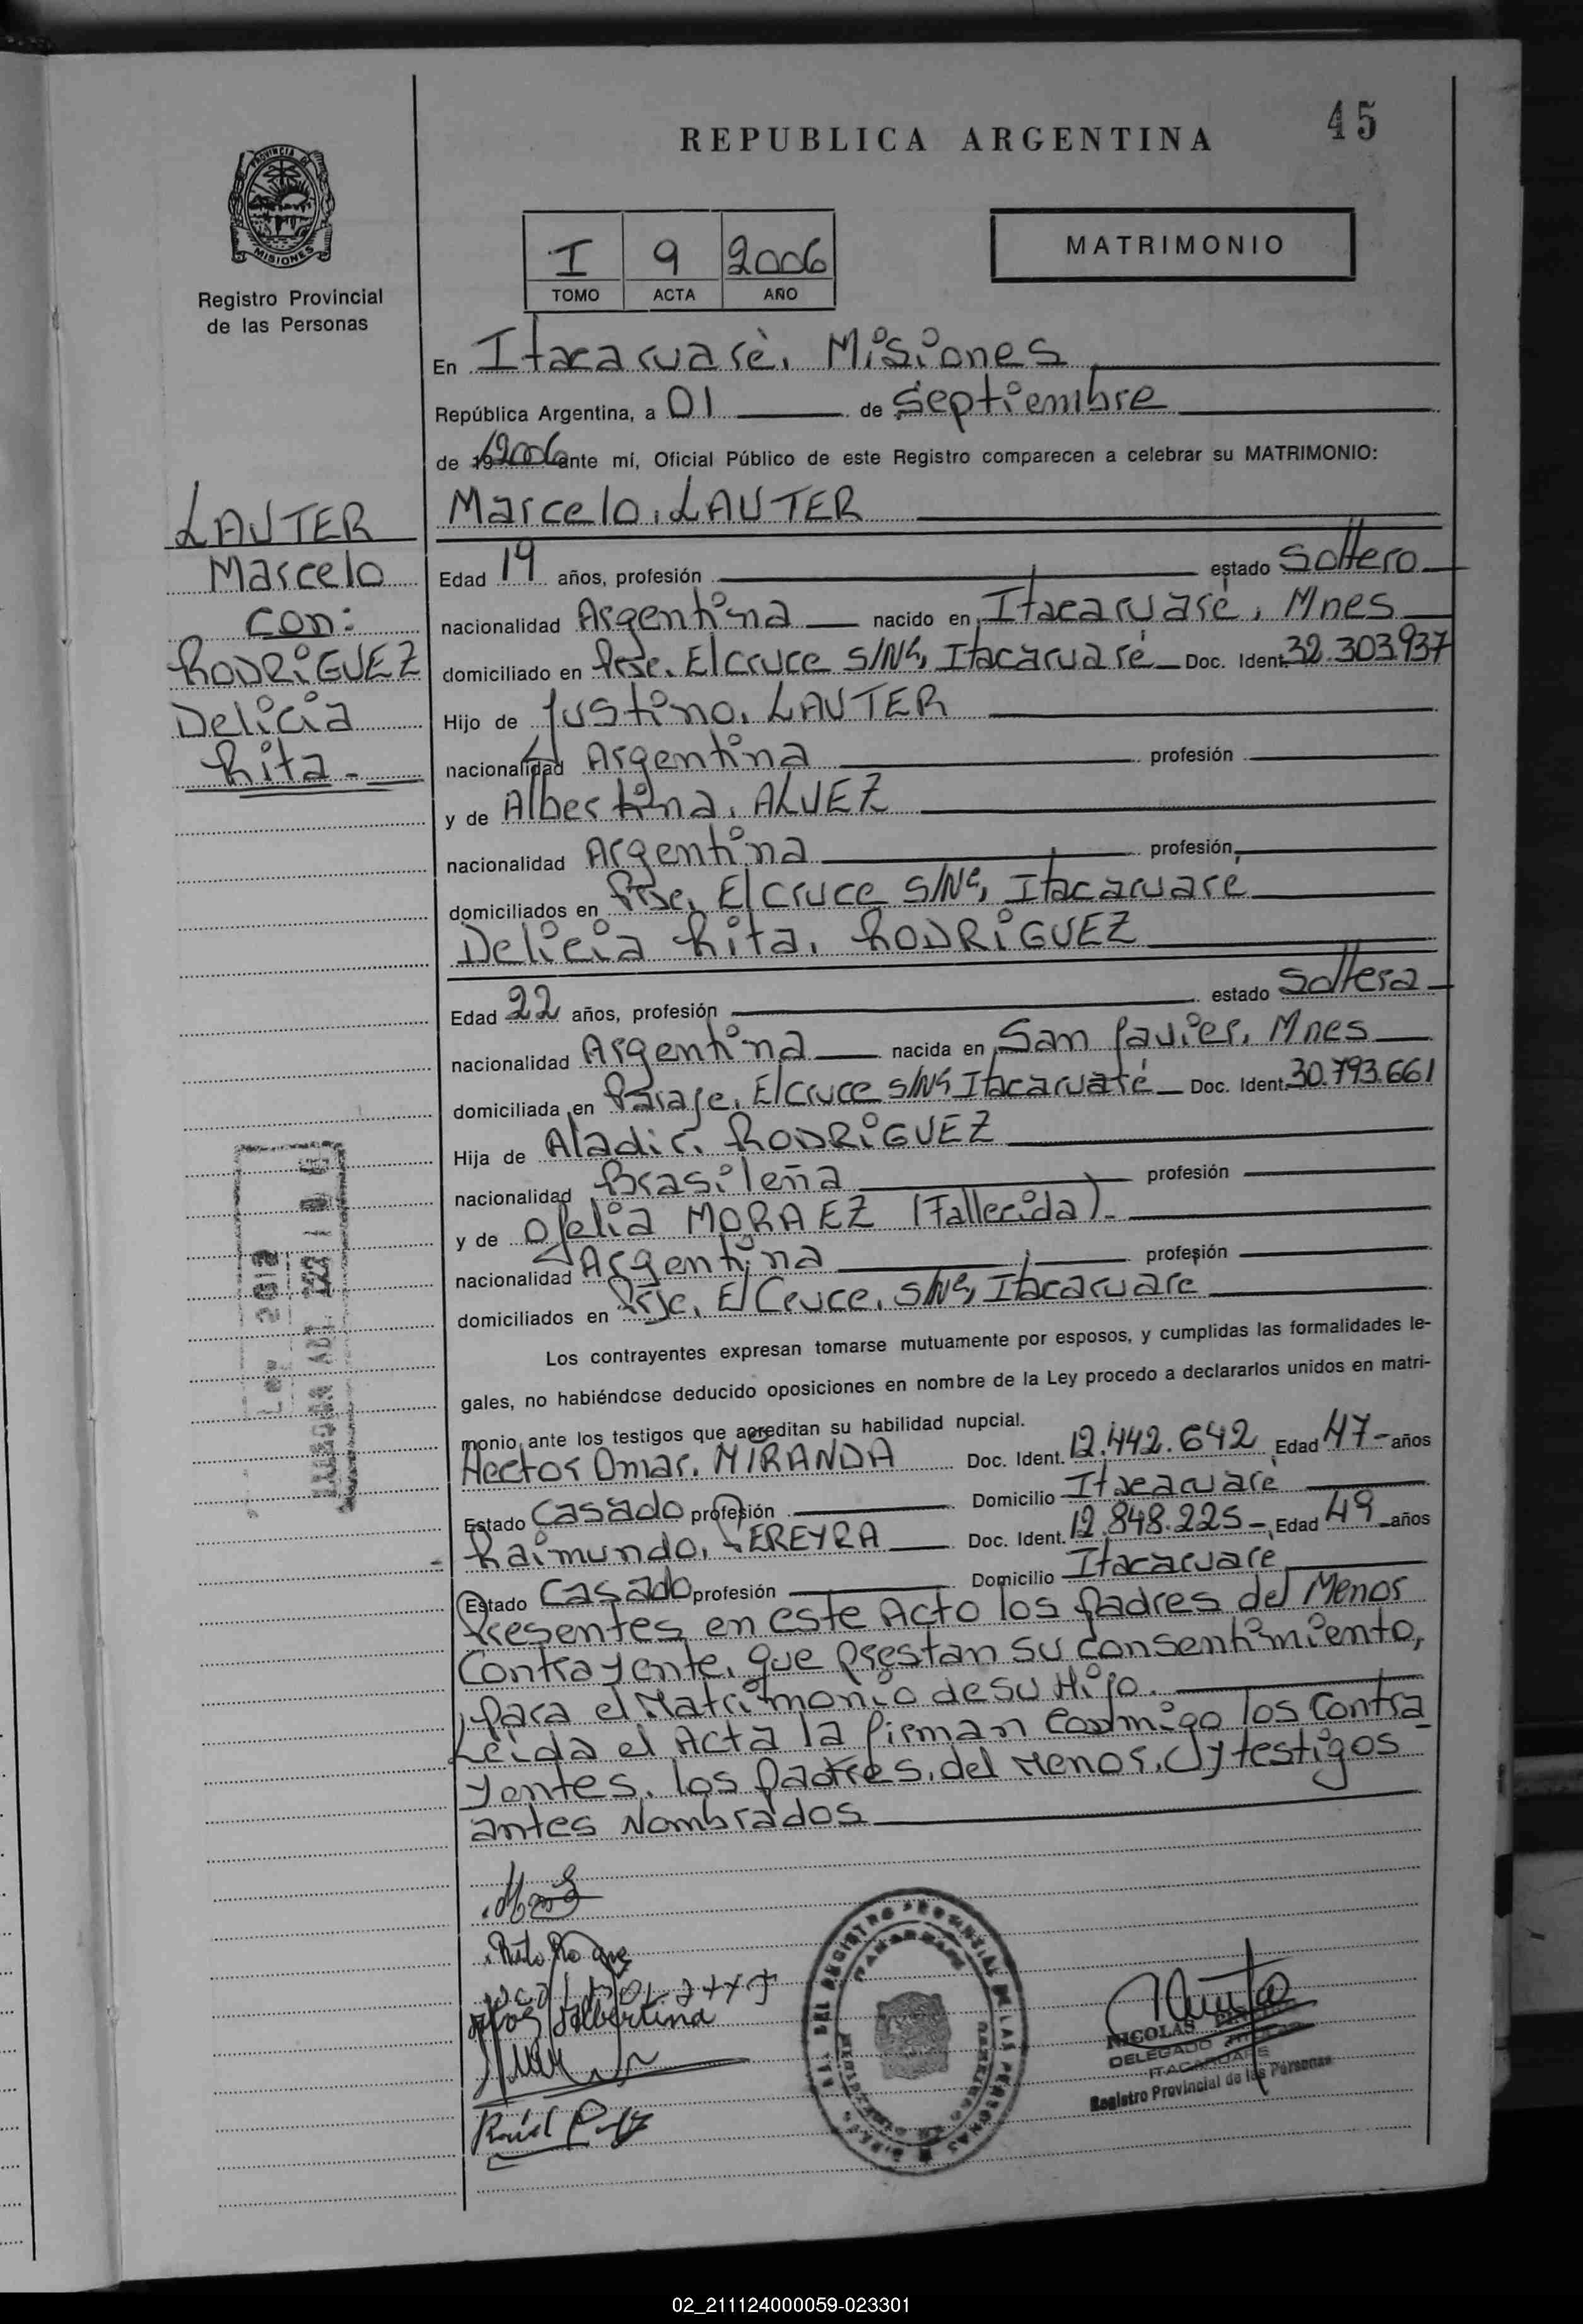 45
REPUBLICA ARGENTINA
PROVINCIA DE
MISIONES
Registro Provincial
de las Personas
I 9 2006
TOMO ACTA AÑO
MATRIMONIO
En Itacaruaré, Misiones
República Argentina, a 01 de Septiembre
de 19 2006 ante mí, Oficial Público de este Registro comparecen a celebrar su MATRIMONIO:
LAUTER
Marcelo
con:
RODRIGUEZ
Delicia
Rita-
Marcelo, LAUTER
Edad 19 años, profesión estado Soltero
nacionalidad Argentina nacido en Itacaruaré, Mnes
domiciliado en Prje. El Cruce S/Nº, Itacaruaré Doc. Ident. 32.303.937
Hijo de Justino, LAUTER
nacionalidad Argentina profesión
y de Albertina, ALVEZ
nacionalidad Argentina profesión
domiciliados en Prje, El Cruce S/Nº, Itacaruare
Delicia Rita, RODRIGUEZ
Edad 22 años, profesión estado Soltera
nacionalidad Argentina nacida en San Javier, Mnes
domiciliada en Paraje, El Cruce S/Nº Itacaruaré Doc. Ident. 30.793.661
Hija de Aladir, RODRIGUEZ
nacionalidad Brasileña profesión
y de Ofelia MORAEZ (Fallecida)-
nacionalidad Argentina profesión
domiciliados en Prje, El Cruce, S/Nº, Itacaruare
Los contrayentes expresan tomarse mutuamente por esposos, y cumplidas las formalidades le-
gales, no habiéndose deducido oposiciones en nombre de la Ley procedo a declararlos unidos en matri-
monio, ante los testigos que acreditan su habilidad nupcial.
Hector Omar, MIRANDA Doc. Ident. 12.442.642 Edad 47- años
Estado Casado profesión Domicilio Itacaruaré
Raimundo, PEREYRA Doc. Ident. 12.848.225- Edad 49 años
Estado Casado profesión Domicilio Itacaruare
Presentes en este Acto los Padres del Menor
Contrayente, que prestan su consentimiento,
para el Matrimonio de su Hijo.
Leida el Acta la firman conmigo los Contra
yentes, los Padres, del Menor, y testigos
antes Nombrados
Albertina
NICOLAS
DELEGADO
ITACARUARE
Registro Provincial de las Personas
02_211124000059-023301